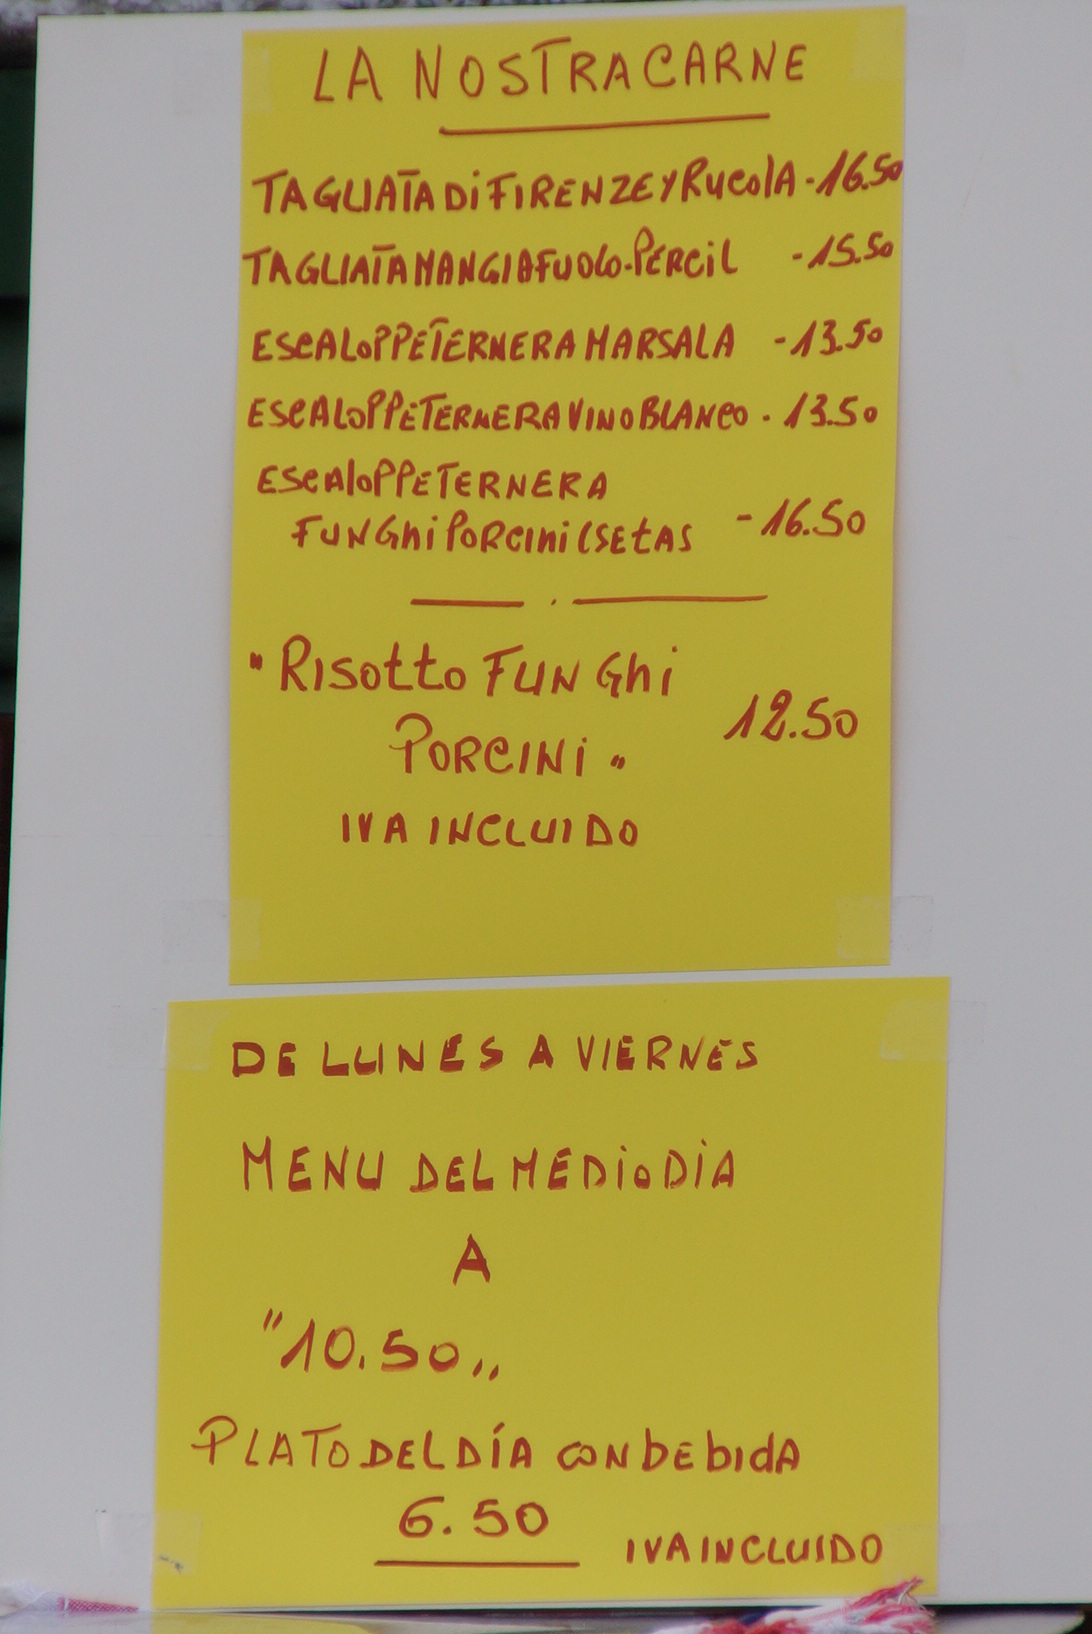 LA NOSTRA CARNE
TAGLIATA Di FIRENZE Y RucolA - 16.50
TAGLIATA MANGIAFUOCO - PERCiL - 15.50
ESCALOPPE TERNERA MARSALA - 13.50
ESCALOPPE TERNERA VINO BLANCO - 13.50
ESCAlOPPE TERNERA
FUNGhi PORCini (SEtAS - 16.50
"RISOttO FUNGhi
PORCINi" 12.50
IVA INCLUIDO
DE LUNES A VIERNES
MENU DEL MEDioDiA
A
"10.50"
PLATO DEL DÍA CON bEbIdA
6.50 IVA INCLUIDO